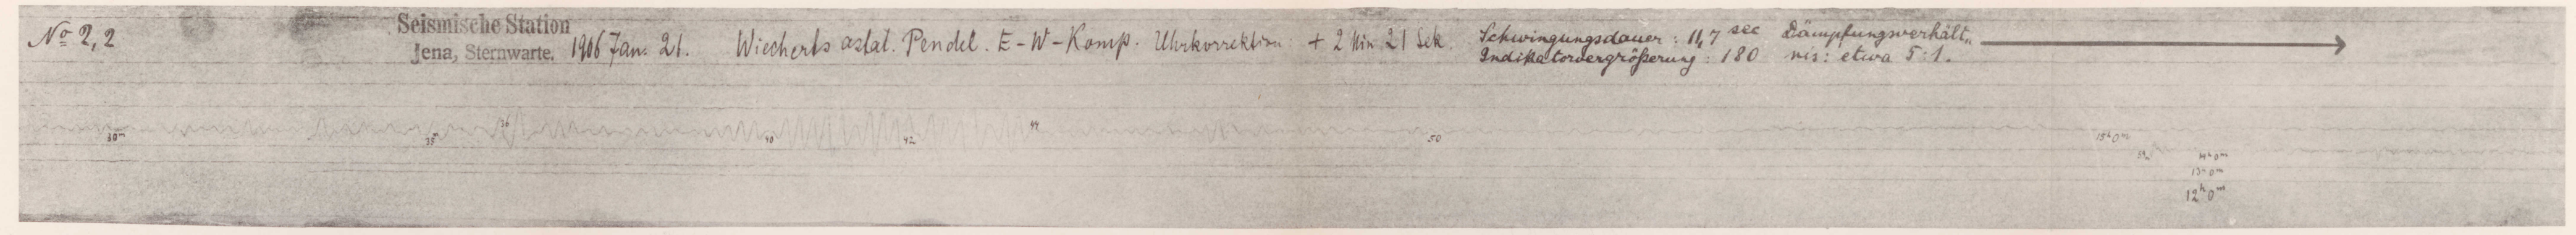 No 2,2
Seismische Station
Jena, Sternwarte. 1906 Jan. 21. Wiecherts astat. Pendel. E-W-Komp. Uhrkorrektion: + 2 Min 21 Sek.
Schwingungsdauer: 11,7 sec Dämpfungsverhält„
Indikatorvergrößerung: 180 nis: etwa 5:1.
30m 35m 36 40 42 44 50 15h0m
14h0m
13h0m
12h0m